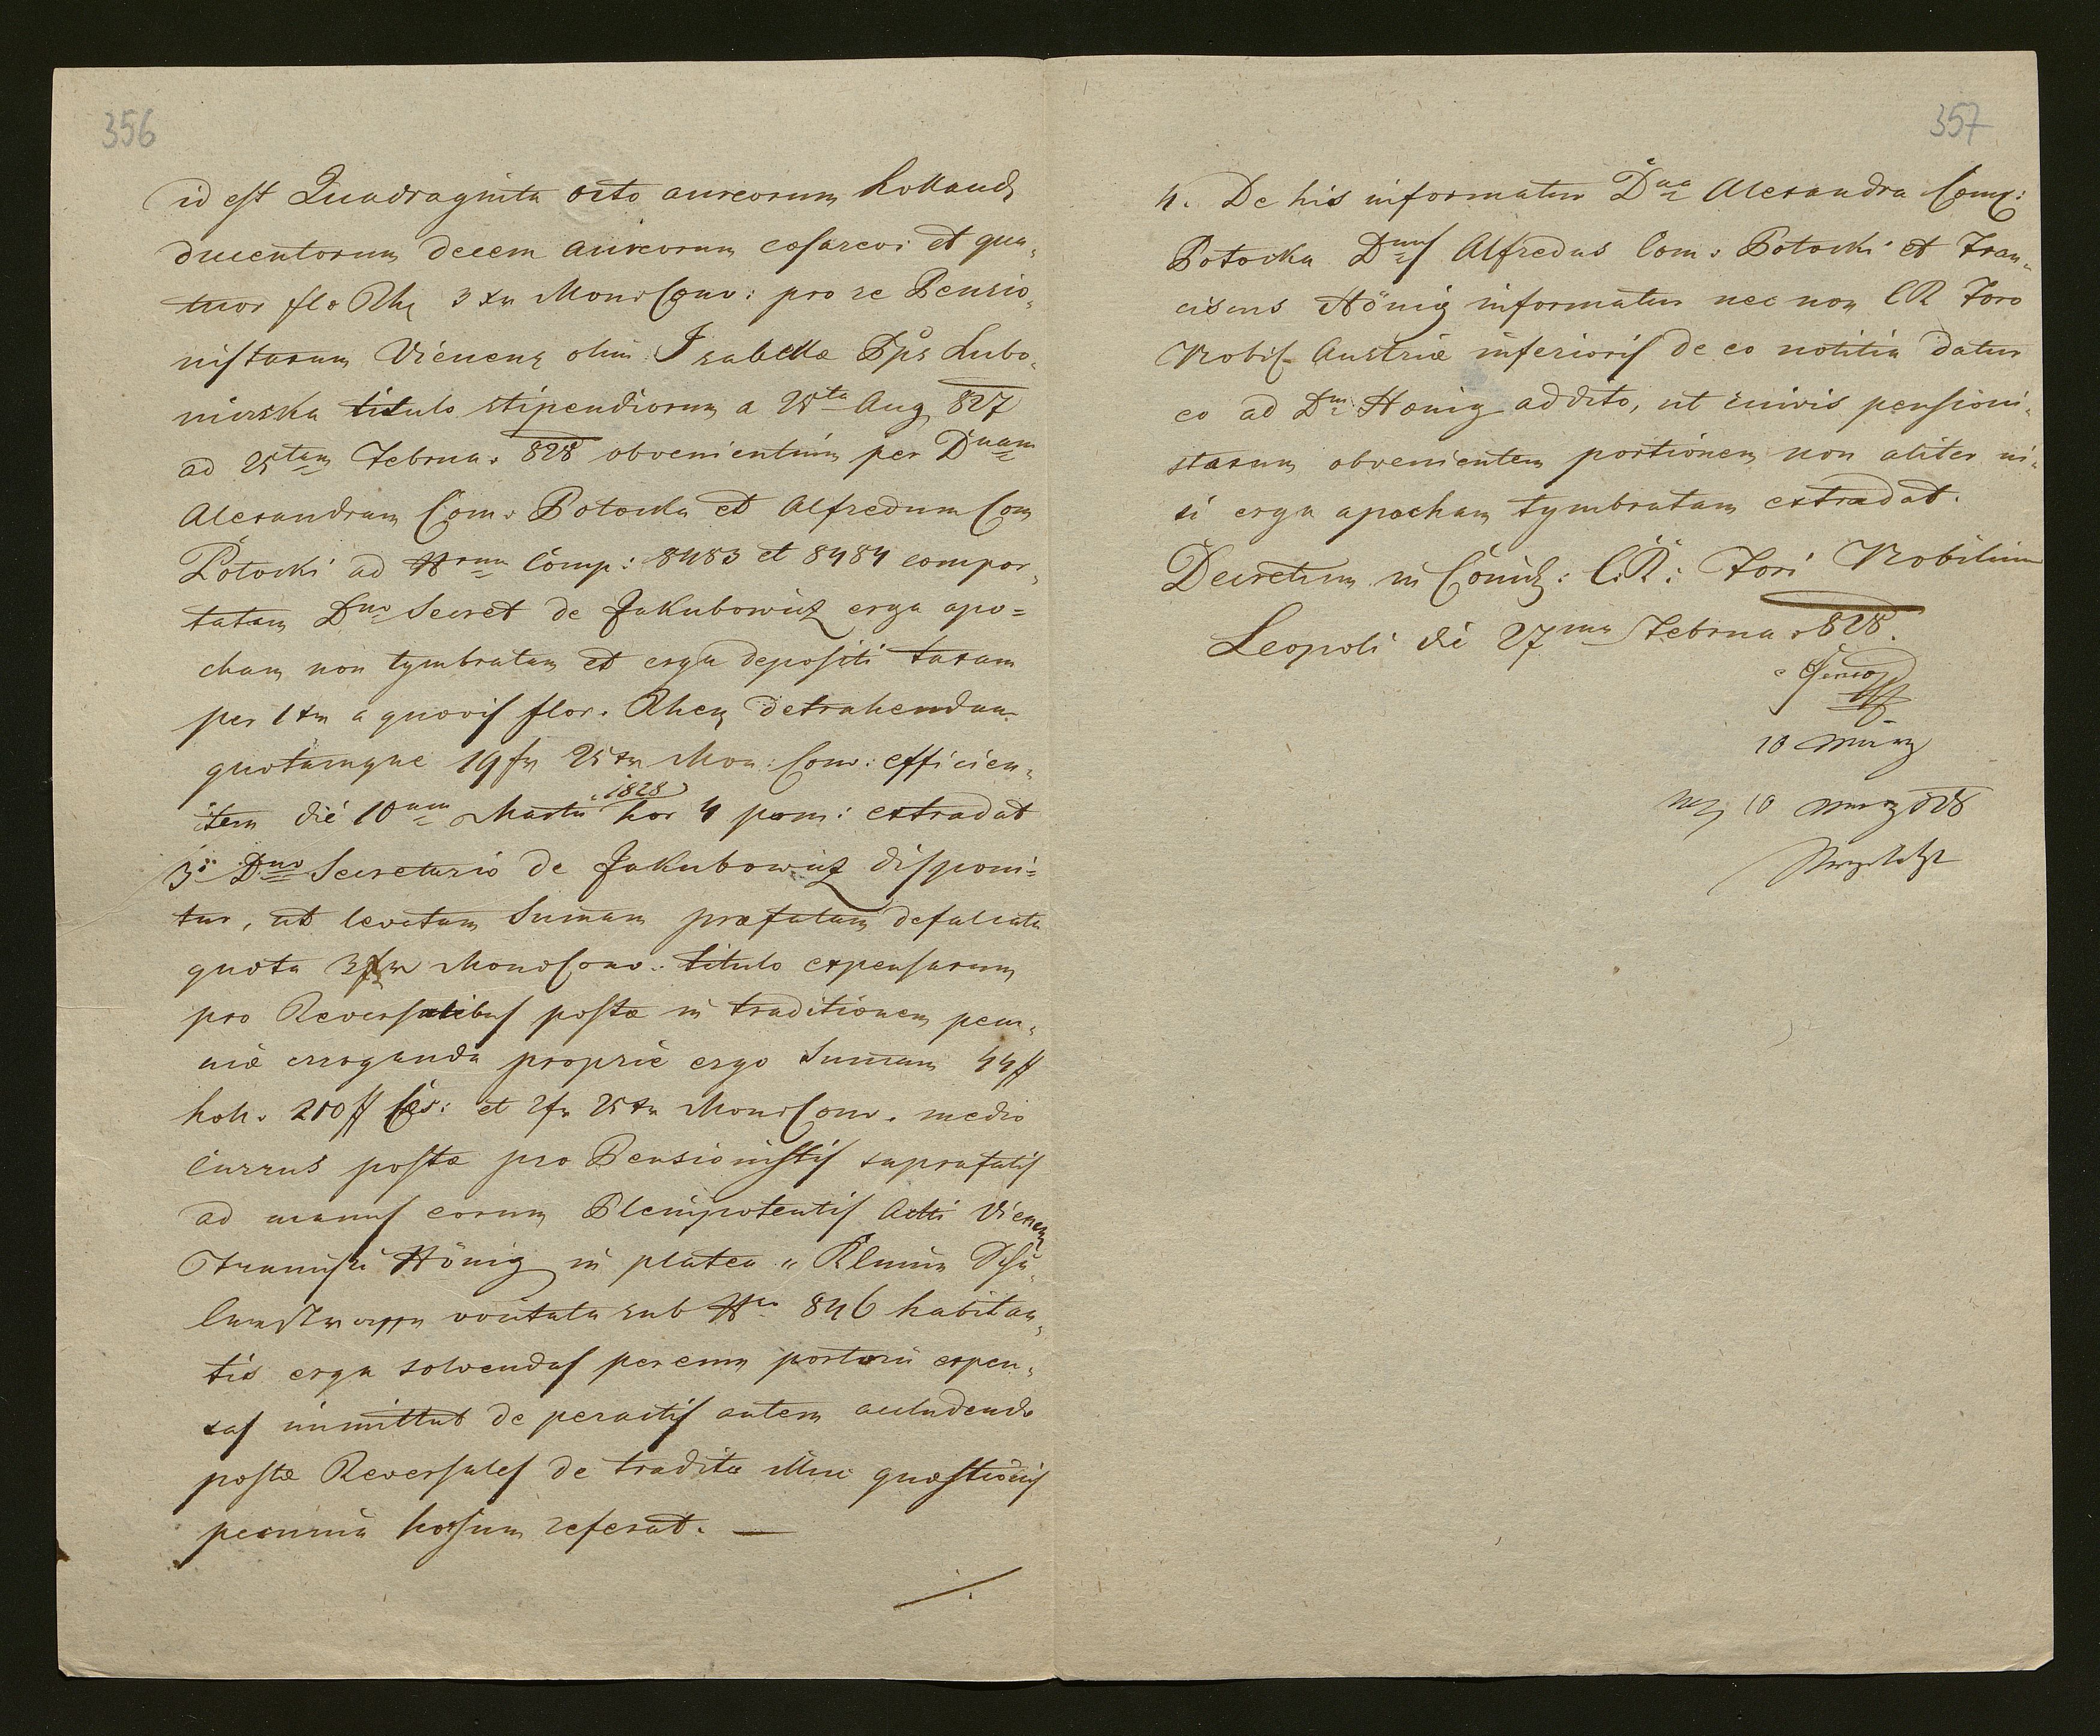 356
id est Quadraginta octo aureorum Holland
ducentorum decem aureorum cæsareor: et qua„
tuor flo Rhe 3 xr Mon: Conv: pro re Pensio„
nistarum Vienens olim Isabellæ Dpis Lubo„
mirska titulo stipendiorum a 25ta Aug 827
ad 25tam Februar 828 obvenientium per Dnam
Alexandram Com: Potocka et Alfredum Com
Potocki ad Nrum Comp: 8483 et 8484 compor„
tatam Dno Secret de Jakubowicz erga apo=
cham non tymbratam et erga depositi taxam
per 1 xr a quovis flor. Rhen detrahendam
quotamque 19 fr 25 xr Mon: Conv: efficien„
tem die 10ma Martii 1828 hor 4 pom: extradat
3o Dno Secretario de Jakubowicz disponi=
tur, ut levatam Sumam præfatam defalcata
quota 3 xr Mon: Conv: titulo expensarum
pro Reversalibus postæ in traditionem pecu„
niæ erroganda proprie ergo Sumam 44 ff
hol. 210 ff Cæs: et 2 fr 25 xr Mon: Conv. medio
Currus postæ pro Pensionistis suprafatis
ad manus eorum Plenipotentis Actti Vienen
Francisci Hönig in platea „ Kleine Schu„
vocitata sub Nro 846 habitan„
tis erga solvendas per eum portorii expen„
sas immittat de peractis autem acludendo
postæ Reversales de tradita illuc quæstionis
pecunia horsum referat. —
./.
357
4. De his informatur Dna Alexandra Com:
Potocka Dnus Alfredus Com: Potocki et Fran„
ciscus Hönig informatur nec non CR Foro
Nobil Austriæ inferioris de eo notitia datur
eo ad Dm Hœnig addito, ut cuivis pensioni„
starum obvenientem portionem non aliter ni„
si erga apocham tymbratam extradat.
Decretum in Consil: C.R: Fori Nobilium
Leopoli die 27ma Februar 828.
10 März
10 März 828